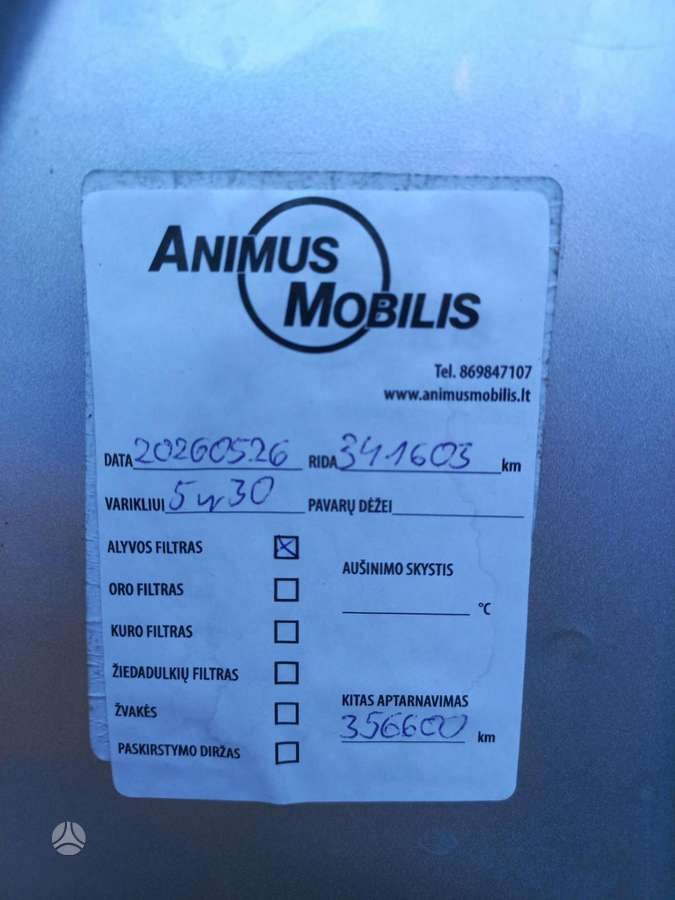 ANIMUS
MOBILIS
Tel. 869847107
www.animusmobilis.lt
DATA 20260526 RIDA 341603 km
VARIKLIUI 5w30 PAVARŲ DĖŽEI
ALYVOS FILTRAS
ORO FILTRAS
KURO FILTRAS
ŽIEDADULKIŲ FILTRAS
ŽVAKĖS
PASKIRSTYMO DIRŽAS
AUŠINIMO SKYSTIS
°C
KITAS APTARNAVIMAS
356600 km